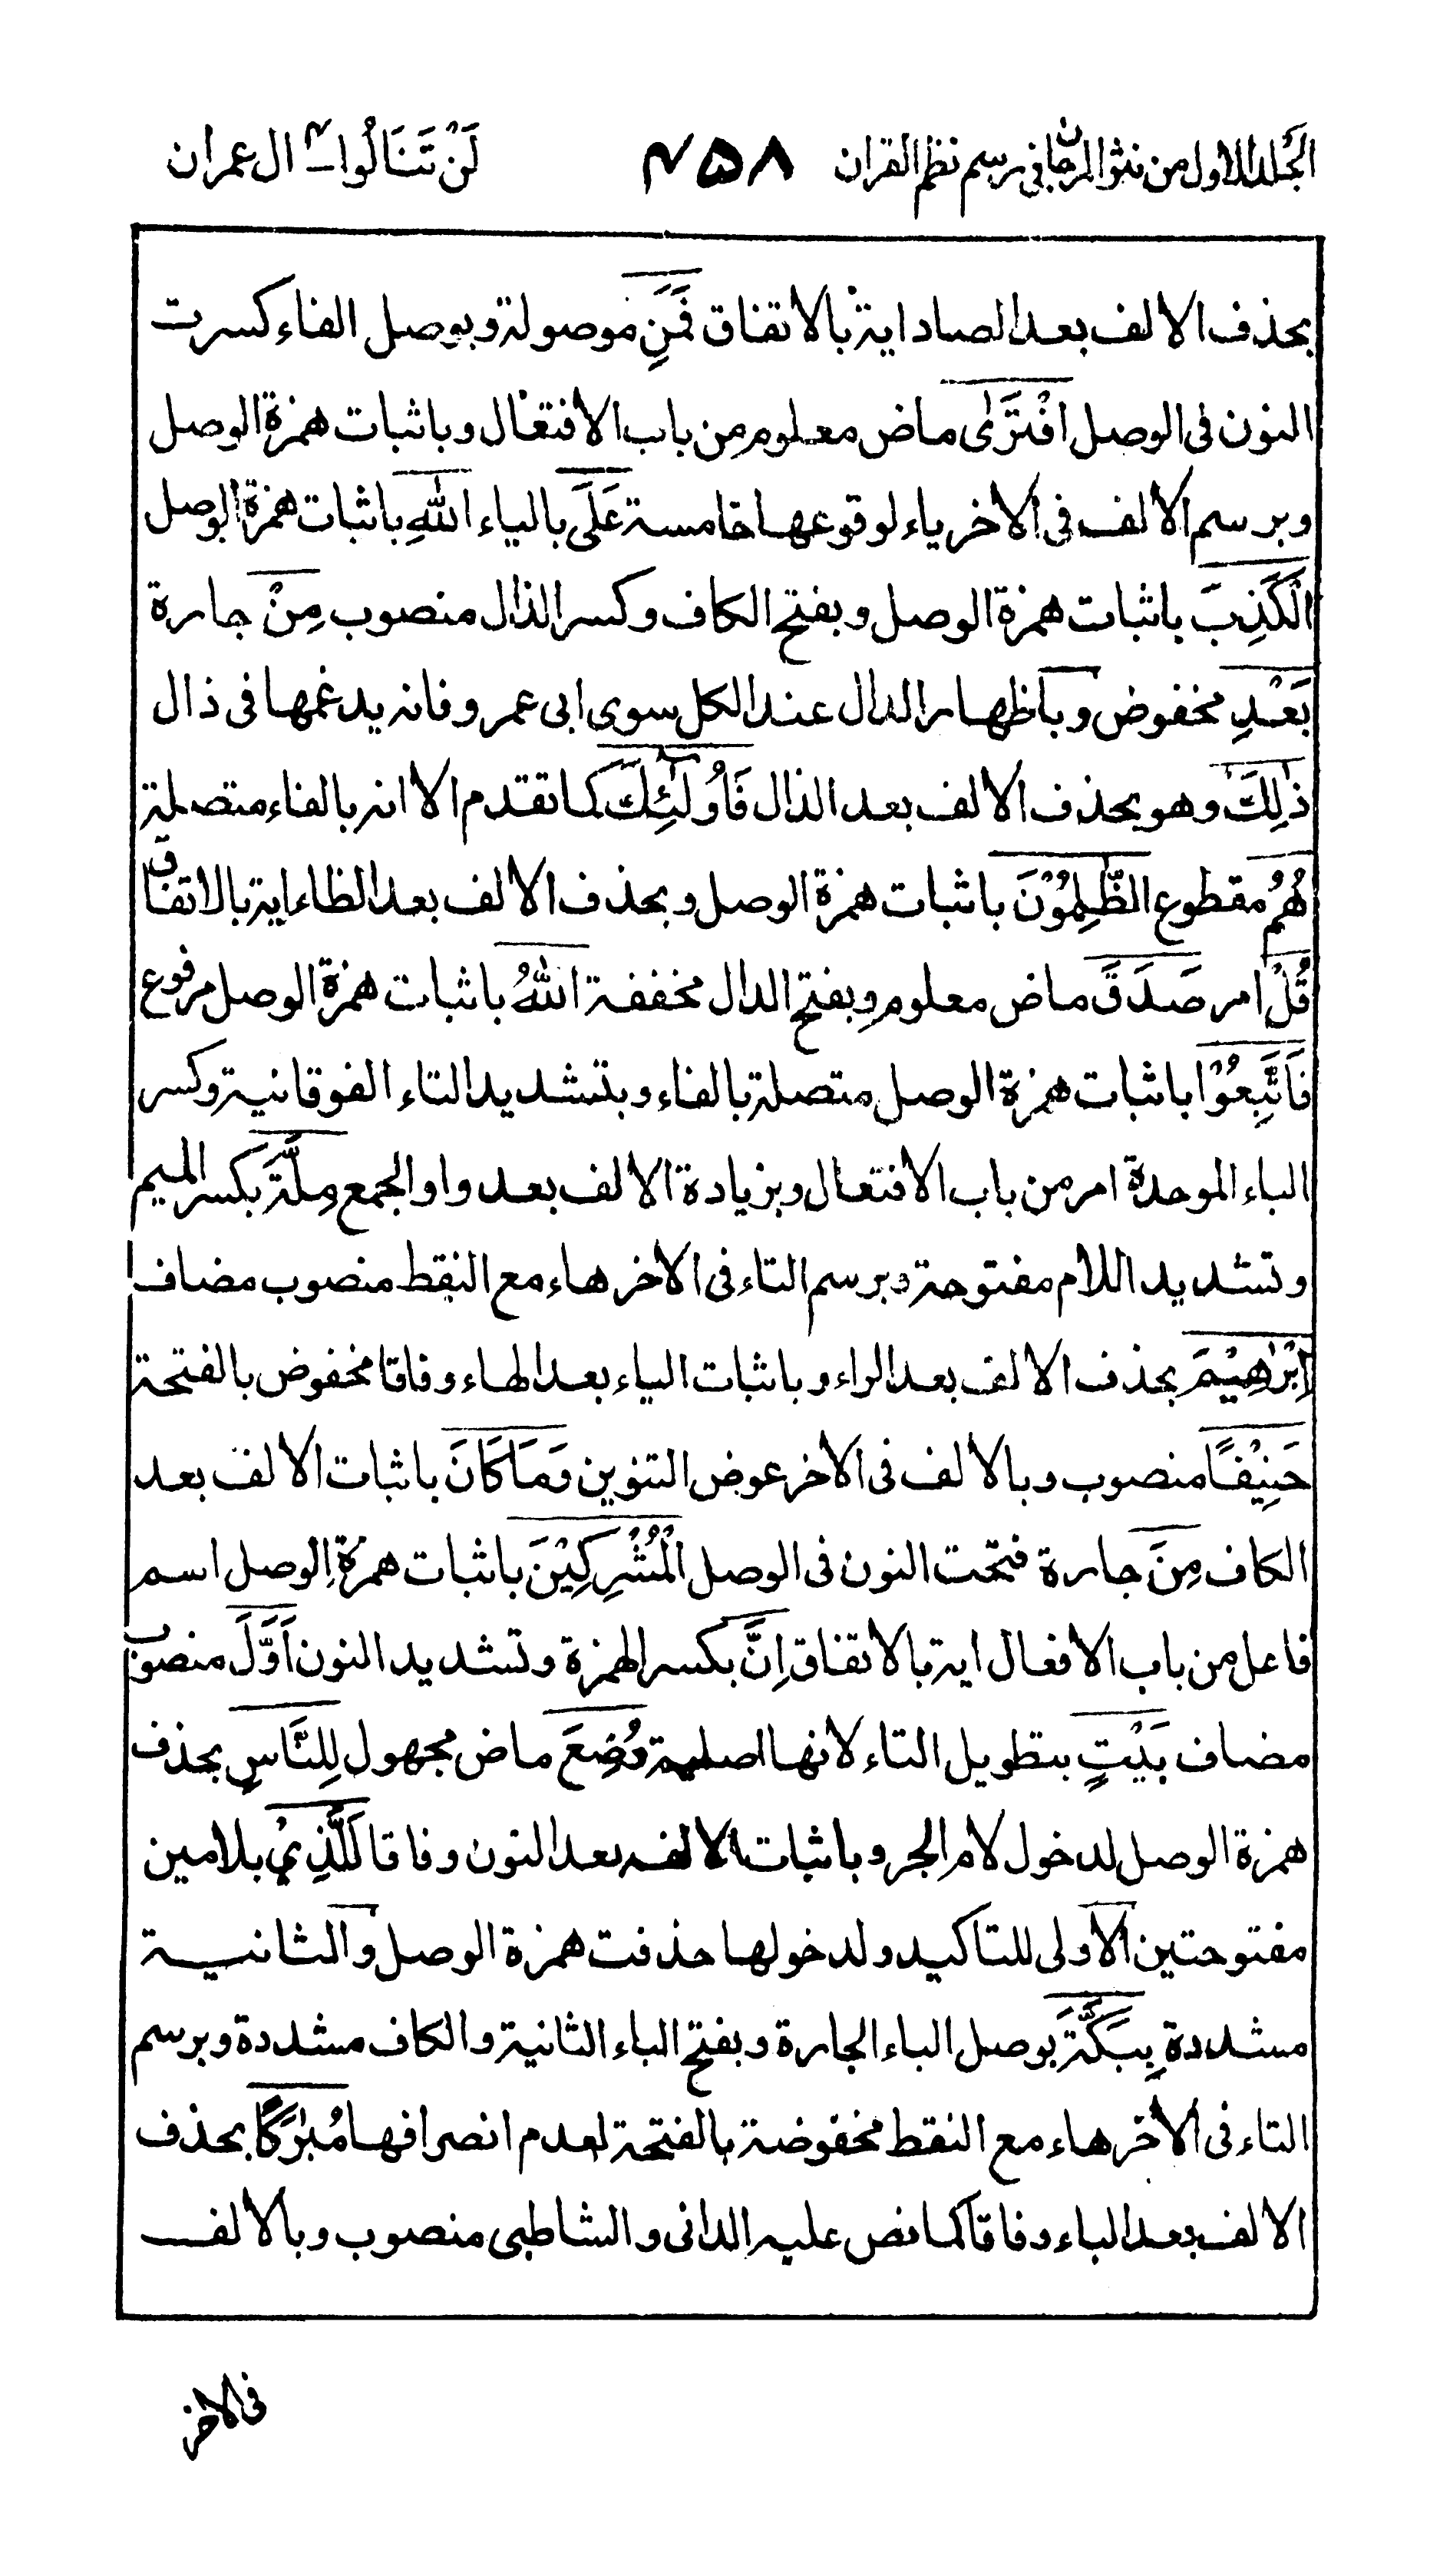 الجلد الاول من نثر المرجان فى رسم نظم القران ۴۵۸ لَنْ تَنَالُوا۴ ال عمران
بحذف الالف بعد الصاد اية بالاتفاق فَمَنِ موصولة وبوصل الفاء كسرت
النون فى الوصل افْتَرٰى ماض معلوم من باب الافتعال وباثبات همزة الوصل
وبرسم الالف فى الاخر ياء لوقوعها خامسة عَلَى بالياء اللّٰهِ باثبات همزة الوصل
الْكَذِبَ باثبات همزة الوصل وبفتح الكاف وكسر الذال منصوب مِنْ جارة
بَعْدِ مخفوض وباظهار الدال عند الكل سوى ابى عمرو فانه يدغمها فى ذال
ذٰلِكَ وهو بحذف الالف بعد الذال فَاُولٰٓئِكَ كما تقدم الا انه بالفاء متصلة
هُمُ مقطوع الظّٰلِمُوْنَ باثبات همزة الوصل وبحذف الالف بعد الظاء اية بالاتفاق
قُلْ امر صَدَقَ ماض معلوم وبفتح الدال مخففة اللّٰهُ باثبات همزة الوصل مرفوع
فَاتَّبِعُوْا باثبات همزة الوصل متصلة بالفاء وبتشديد التاء الفوقانية وكسر
الباء الموحدة امر من باب الافتعال وبزيادة الالف بعد واو الجمع مِلَّةَ بكسر الميم
وتشديد اللام مفتوحة وبرسم التاء فى الاخر هاء مع النقط منصوب مضاف
اِبْرٰهِيْمَ بحذف الالف بعد الراء وباثبات الياء بعد الهاء وفاقا مخفوض بالفتحة
حَنِيْفًا منصوب وبالالف فى الاخر عوض التنوين وَمَا كَانَ باثبات الالف بعد
الكاف مِنَ جارة فتحت النون فى الوصل الْمُشْرِكِيْنَ باثبات همزة الوصل اسم
فاعل من باب الافعال اية بالاتفاق اِنَّ بكسر الهمزة وتشديد النون اَوَّلَ منصوب
مضاف بَيْتٍ بتطويل التاء لانها اصلية وُضِعَ ماض مجهول لِلنَّاسِ بحذف
همزة الوصل لدخول لام الجر وباثبات الالف بعد النون وفاقا لَلَّذِيْ بلامين
مفتوحتين الاولى للتاكيد ولدخولها حذفت همزة الوصل والثانية
مشددة بِبَكَّةَ بوصل الباء الجارة وبفتح الباء الثانية والكاف مشددة وبرسم
التاء فى الاخر هاء مع النقط مخفوضة بالفتحة لعدم انصرافها مُبٰرَكًا بحذف
الالف بعد الباء وفاقا كما نص عليه الدانى والشاطبى منصوب وبالالف
فى الاخر